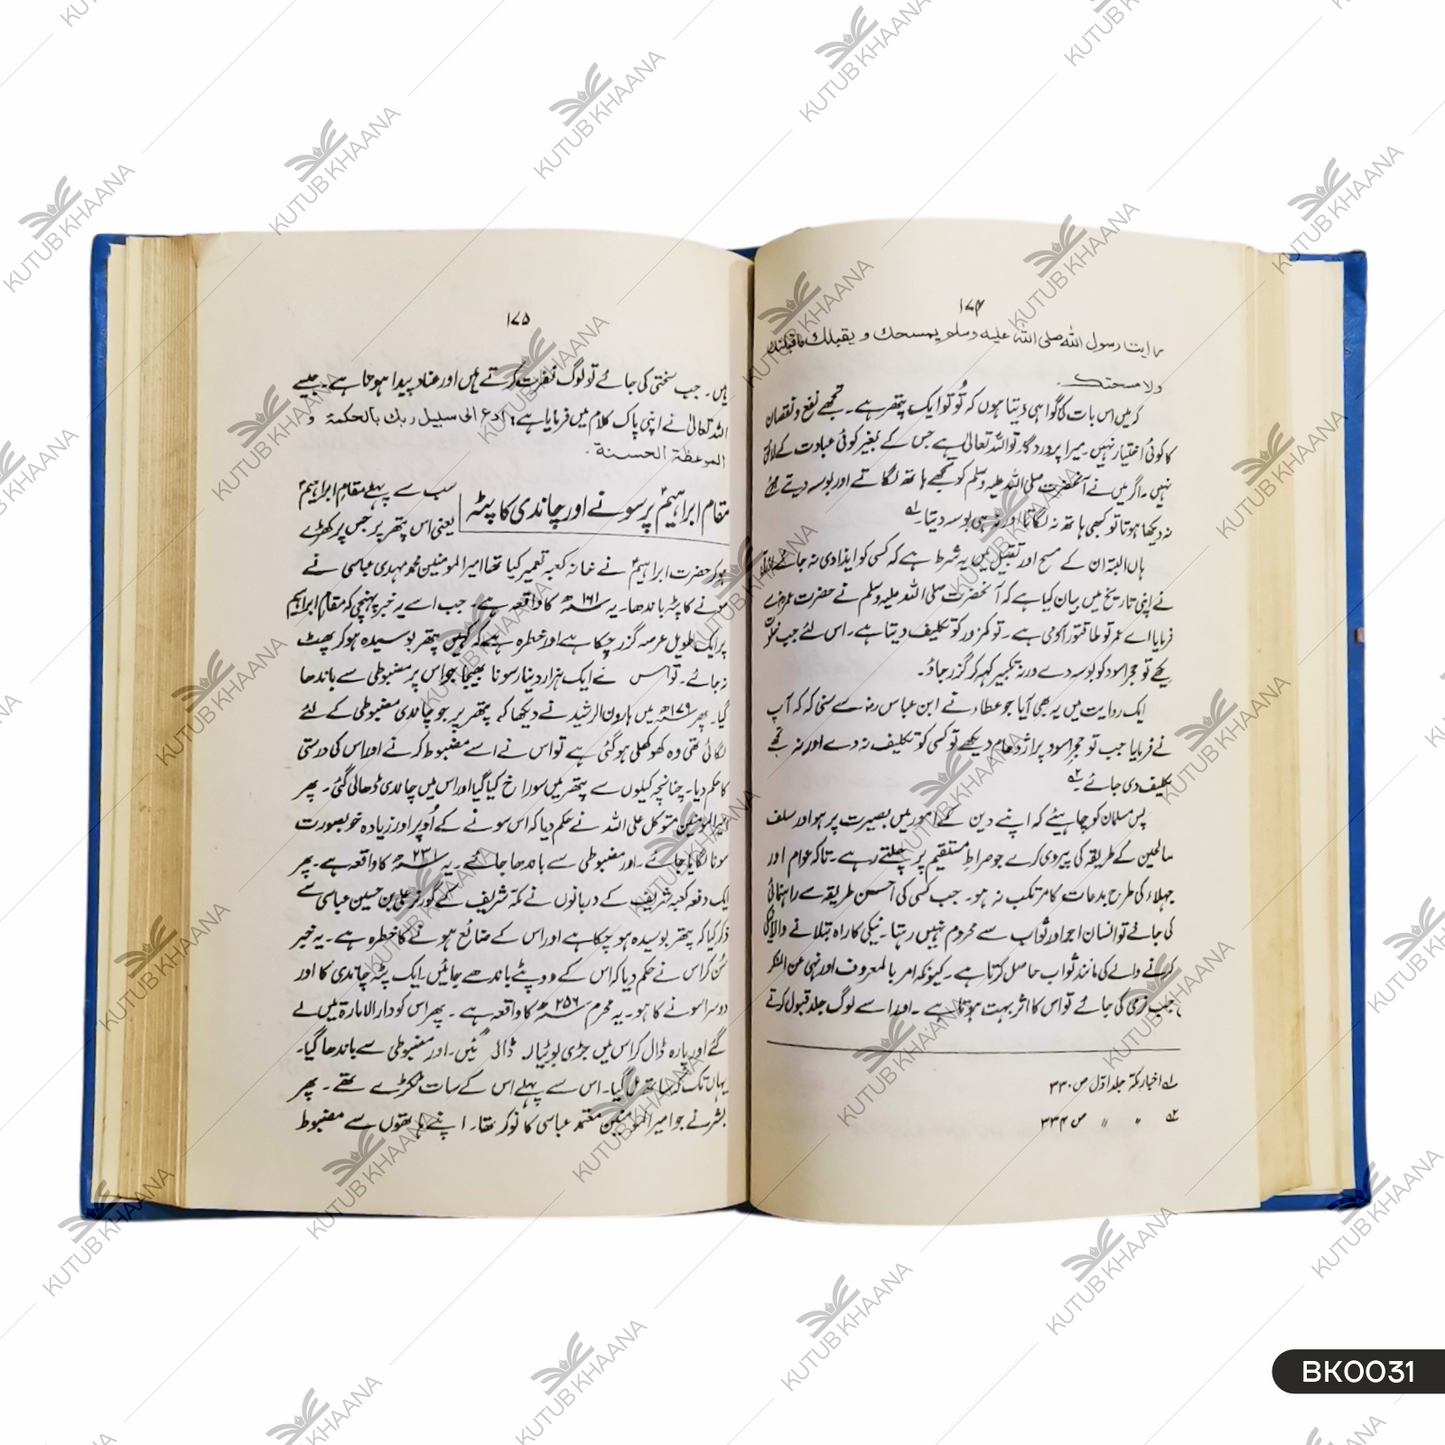 ۱۷۴
رایت رسول اللہ صلی اللہ علیہ وسلم یمسحك و یقبلك ما قبلتك
ولا مسحتك۔
کہ میں اس بات کا گواہی دیتا ہوں کہ تُو تو ایک پتھر ہے۔ تجھے نفع و نقصان
کا کوئی اختیار نہیں۔ میرا پروردگار تو اللہ تعالیٰ ہے جس کے بغیر کوئی عبادت کے لائق
نہیں۔ اگر میں نے آنحضرت صلی اللہ علیہ وسلم کو تجھے ہاتھ لگاتے اور بوسہ دیتے
نہ دیکھا ہوتا تو کبھی ہاتھ نہ لگاتا اور نہ ہی بوسہ دیتا۔ ۱؎
ہاں البتہ ان کے مسح اور تقبیل میں یہ شرط ہے کہ کسی کو ایذا دی نہ جائے
نے اپنی تاریخ میں بیان کیا ہے کہ آنحضرت صلی اللہ علیہ وسلم نے حضرت عمرؓ سے
فرمایا اے عمر تو طاقتور آدمی ہے۔ تو کمزور کو تکلیف دیتا ہے۔ اس لئے جب
تو حجر اسود کو بوسہ دے ورنہ تکبیر کہہ کر گزر جاؤ۔
ایک روایت میں یہ بھی آیا جو عطاء نے ابن عباس رضہ سے سنی کہ کہ آپ
نے فرمایا جب تو حجر اسود پر اژدھام دیکھے تو کسی کو تکلیف نہ دے اور نہ تجھے
تکلیف دی جائے ۲؎
پس مسلمان کو چاہیئے کہ اپنے دین کے امور میں بصیرت پر ہو اور سلف
صالحین کے طریقہ کی پیروی کرے جو صراط مستقیم پر چلتے رہے۔ تاکہ عوام اور
جہلاء کی طرح بدعات کا مرتکب نہ ہو۔ جب کسی کی احسن طریقہ سے راہنمائی
کی جائے تو انسان اجر اور ثواب سے محروم نہیں رہتا۔ نیکی کا راہ بتلانے والا
کرنے والے کی مانند ثواب حاصل کرتا ہے۔ کیونکہ امر بالمعروف اور نہی عن المنکر
جب نرمی کی جائے تو اس کا اثر بہت ہوتا ہے۔ اور اسے لوگ جلد قبول کرتے
۱؎ اخبار مکۃ جلد اول ص ۳۳۰
۲؎ 〃 〃 ص ۳۳۴
۱۷۵
ہیں۔ جب سختی کی جائے تو لوگ نفرت کرتے ہیں اور عناد پیدا ہوتا ہے۔ جیسے
اللہ تعالیٰ نے اپنی پاک کلام میں فرمایا ہے؛ ادع الی سبیل ربك بالحکمة و
الموعظة الحسنة۔
مقام ابراہیمؑ پر سونے اور چاندی کا پٹہ
سب سے پہلے مقام ابراہیمؑ
یعنی اس پتھر پر جس پر کھڑے
ہو کر حضرت ابراہیمؑ نے خانہ کعبہ تعمیر کیا تھا امیر المومنین محمد مہدی عباسی نے
سونے کا پٹہ باندھا۔ یہ ۱۶۱ھ کا واقعہ ہے۔ جب اسے یہ خبر پہنچی کہ مقام ابراہیم
پر ایک طویل عرصہ گزر چکا ہے اور خطرہ ہے کہ کہیں پتھر بوسیدہ ہو کر پھٹ
نہ جائے۔ تو اس نے ایک ہزار دینار سونا بھیجا جو اس پر مضبوطی سے باندھا
گیا۔ پھر ۱۷۹ھ میں ہارون الرشید نے دیکھا کہ پتھر پر جو چاندی مضبوطی کے لئے
لگائی تھی وہ کھوکھلی ہو گئی ہے تو اس نے اسے مضبوط کرنے اور اس کی درستی
کا حکم دیا۔ چنانچہ کیلوں سے پتھر میں سوراخ کیا گیا اور اس میں چاندی ڈھالی گئی۔ پھر
امیر المومنین متوکل علی اللہ نے حکم دیا کہ اس سونے کے اُوپر اور زیادہ خوبصورت
سونا لگایا جائے۔ اور مضبوطی سے باندھا جائے۔ یہ ۲۳۱ھ کا واقعہ ہے۔ پھر
ایک دفعہ کعبہ شریف کے دربانوں نے مکہ شریف کے گورنر علی بن حسین عباسی سے
ذکر کیا کہ پتھر بوسیدہ ہو چکا ہے اور اس کے ضائع ہونے کا خطرہ ہے۔ یہ خبر
سُن کر اس نے حکم دیا کہ اس کے دو پٹے باندھے جائیں۔ ایک پٹہ چاندی کا اور
دوسرا سونے کا ہو۔ یہ محرم ۲۵۶ھ کا واقعہ ہے۔ پھر اس کو دار الامارۃ میں لے
گئے اور پارہ ڈال کر اس میں جڑی بوٹیاں ڈالی گئیں۔ اور مضبوطی سے باندھا گیا۔
یہاں تک کہ ساتھ مل گیا۔ اس سے پہلے اس کے سات ٹکڑے تھے۔ پھر
بشر نے جو امیر المومنین معتمد عباسی کا نوکر تھا۔ اپنے ہاتھوں سے مضبوط
KUTUB KHAANA
BK0031